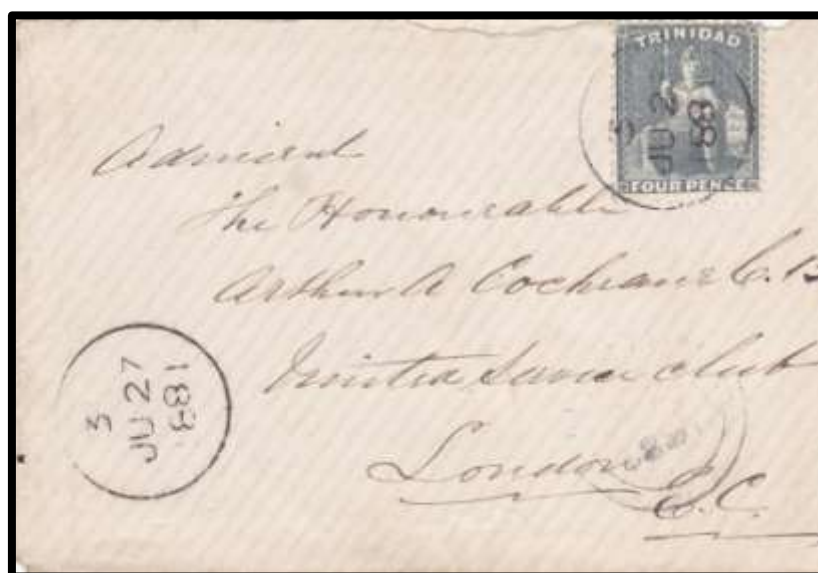 TRINIDAD
3
JU 27
1881
FOUR PENCE
Admiral
The Honourable
Arthur A Cochrane C. B
club
London
E.C.
3
JU 27
1881